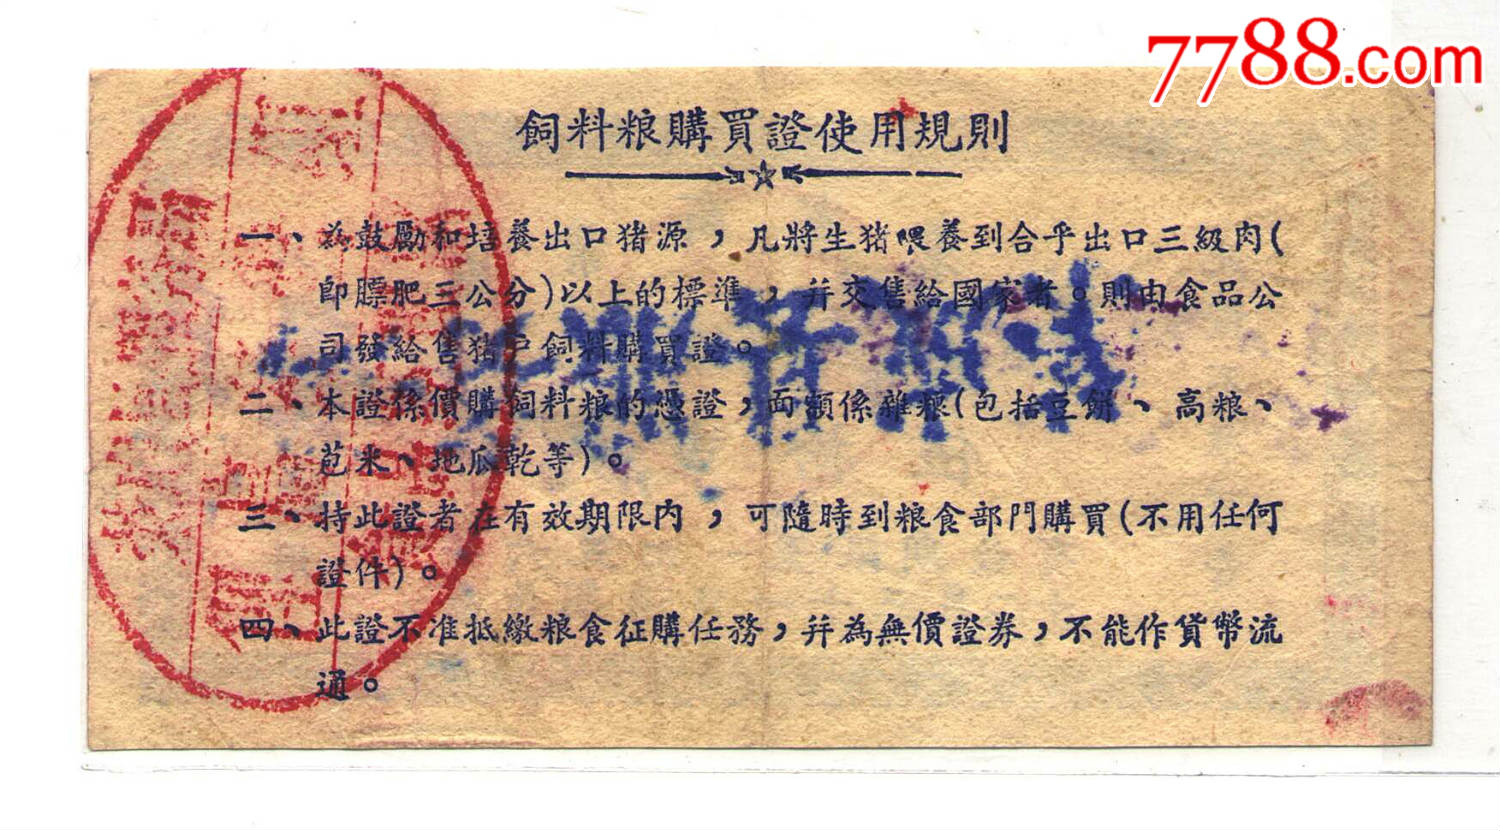 7788.com
飼料粮購買證使用規則
一、為鼓勵和培養出口猪源，凡將生猪喂養到合乎出口三級肉(
即膘肥三公分)以上的標準，并交售給國家者。則由食品公
司發給售猪户飼料購買證。
二、本證係價購飼料粮的憑證，面額係雜粮(包括豆餅、高粮、
苞米、地瓜乾等)。
三、持此證者在有效期限内，可隨時到粮食部門購買(不用任何
證件)。
四、此證不准抵繳粮食征購任務，并為無價證券，不能作貨幣流
通。